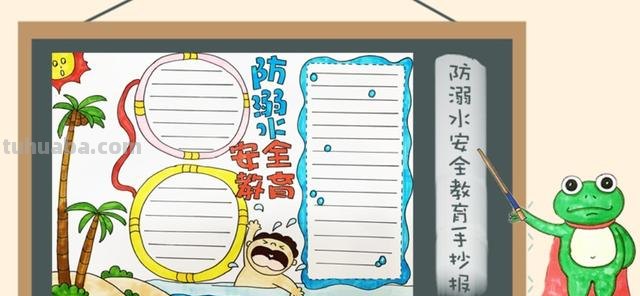 防溺水
安全
教育
防溺水安全教育手抄报
tuhuaba.com